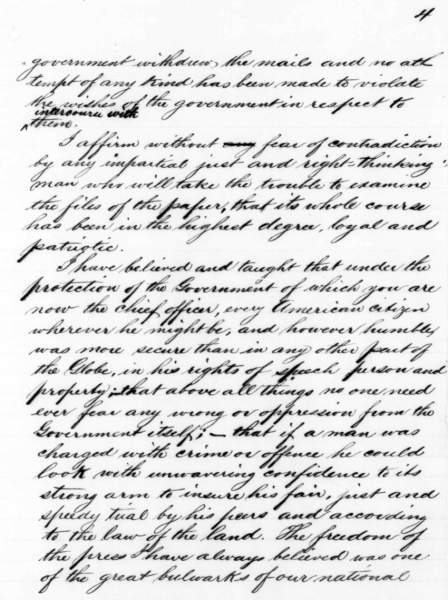 4
government withdrew the mails and no at-
tempt of any kind has been made to violate
the wishes of the government in respect to
intercourse with
them.
I affirm without fear of contradiction
by any impartial just and right-thinking
man who will take the trouble to examine
the files of the paper, that its whole course
has been in the highest degree, loyal and
patriotic.
I have believed and taught that under the
protection of the Government of which you are
now the chief officer, every American citizen
wherever he might be, and however humbly
was more secure than in any other part of
the Globe, in his rights of speech person and
property; that above all things no one need
ever fear any wrong or oppression from the
Government itself; — that if a man was
charged with crime or offence he could
look with unwavering confidence to its
strong arm to insure his fair, just and
speedy trial by his peers and according
to the law of the land. The freedom of
the press I have always believed was one
of the great bulwarks of our national